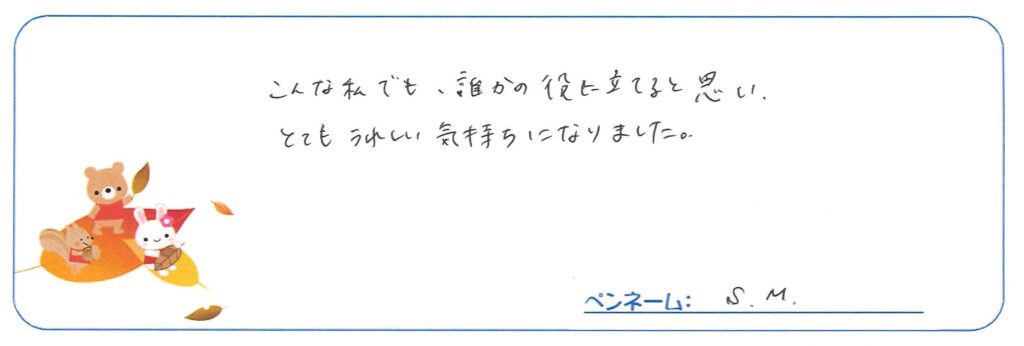 こんな私でも、誰かの役に立てると思い、
とてもうれしい気持ちになりました。
ペンネーム: S.M.